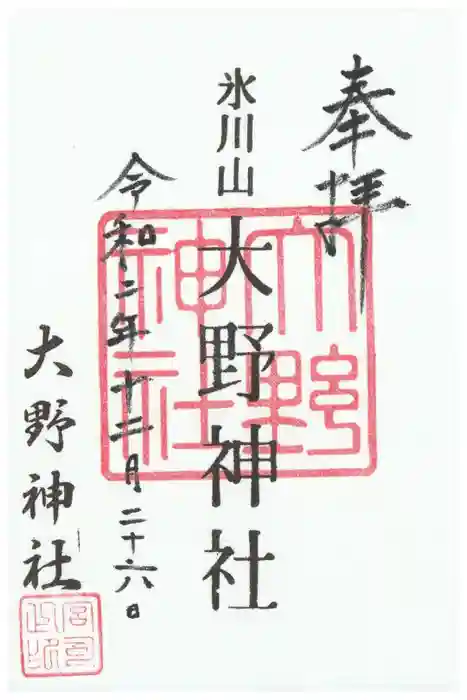 奉拝
氷川山
大野神社
令和二年十二月二十六日
大野神社
大野
神社